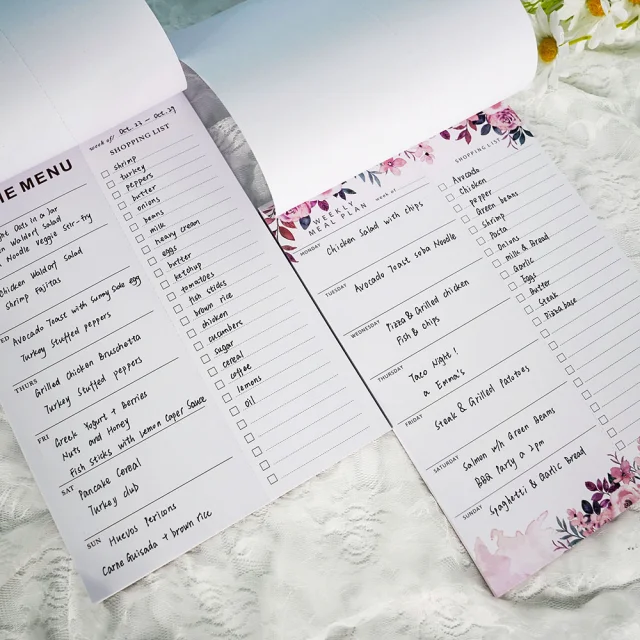 MENU
Week of: Oct. 23 – Oct. 29
SHOPPING LIST
Oats in a Jar
Waldorf Salad
Noodle Veggie Stir-fry
Chicken Waldorf Salad
Shrimp Fajitas
Avocado Toast with Sunny Side egg
Turkey Stuffed peppers
THURS
Grilled Chicken Bruschetta
Turkey Stuffed peppers
FRI
Greek Yogurt + Berries
Nuts and Honey
Fish sticks with Lemon Caper Sauce
SAT
Pancake Cereal
Turkey club
SUN
Huevos Pericons
Carne Guisada + brown rice
shrimp
turkey
peppers
butter
onions
beans
milk
heavy cream
eggs
butter
ketchup
tomatoes
fish sticks
brown rice
chicken
cucumbers
sugar
cereal
coffee
lemons
oil
WEEKLY
MEAL PLAN
Week of
MONDAY
Chicken Salad with chips
TUESDAY
Avocado Toast soba Noodle
WEDNESDAY
Pizza & Grilled chicken
Fish & chips
THURSDAY
Taco Night!
@ Emma's
FRIDAY
Steak & Grilled Potatoes
SATURDAY
Salmon w/h Green Beans
BBQ Party @ 2pm
SUNDAY
Spaghetti & Garlic bread
SHOPPING LIST
Avocado
Chicken
pepper
Green beans
Shrimp
Pasta
Onions
milk & Bread
Garlic
Eggs
Butter
Steak
Pizza base